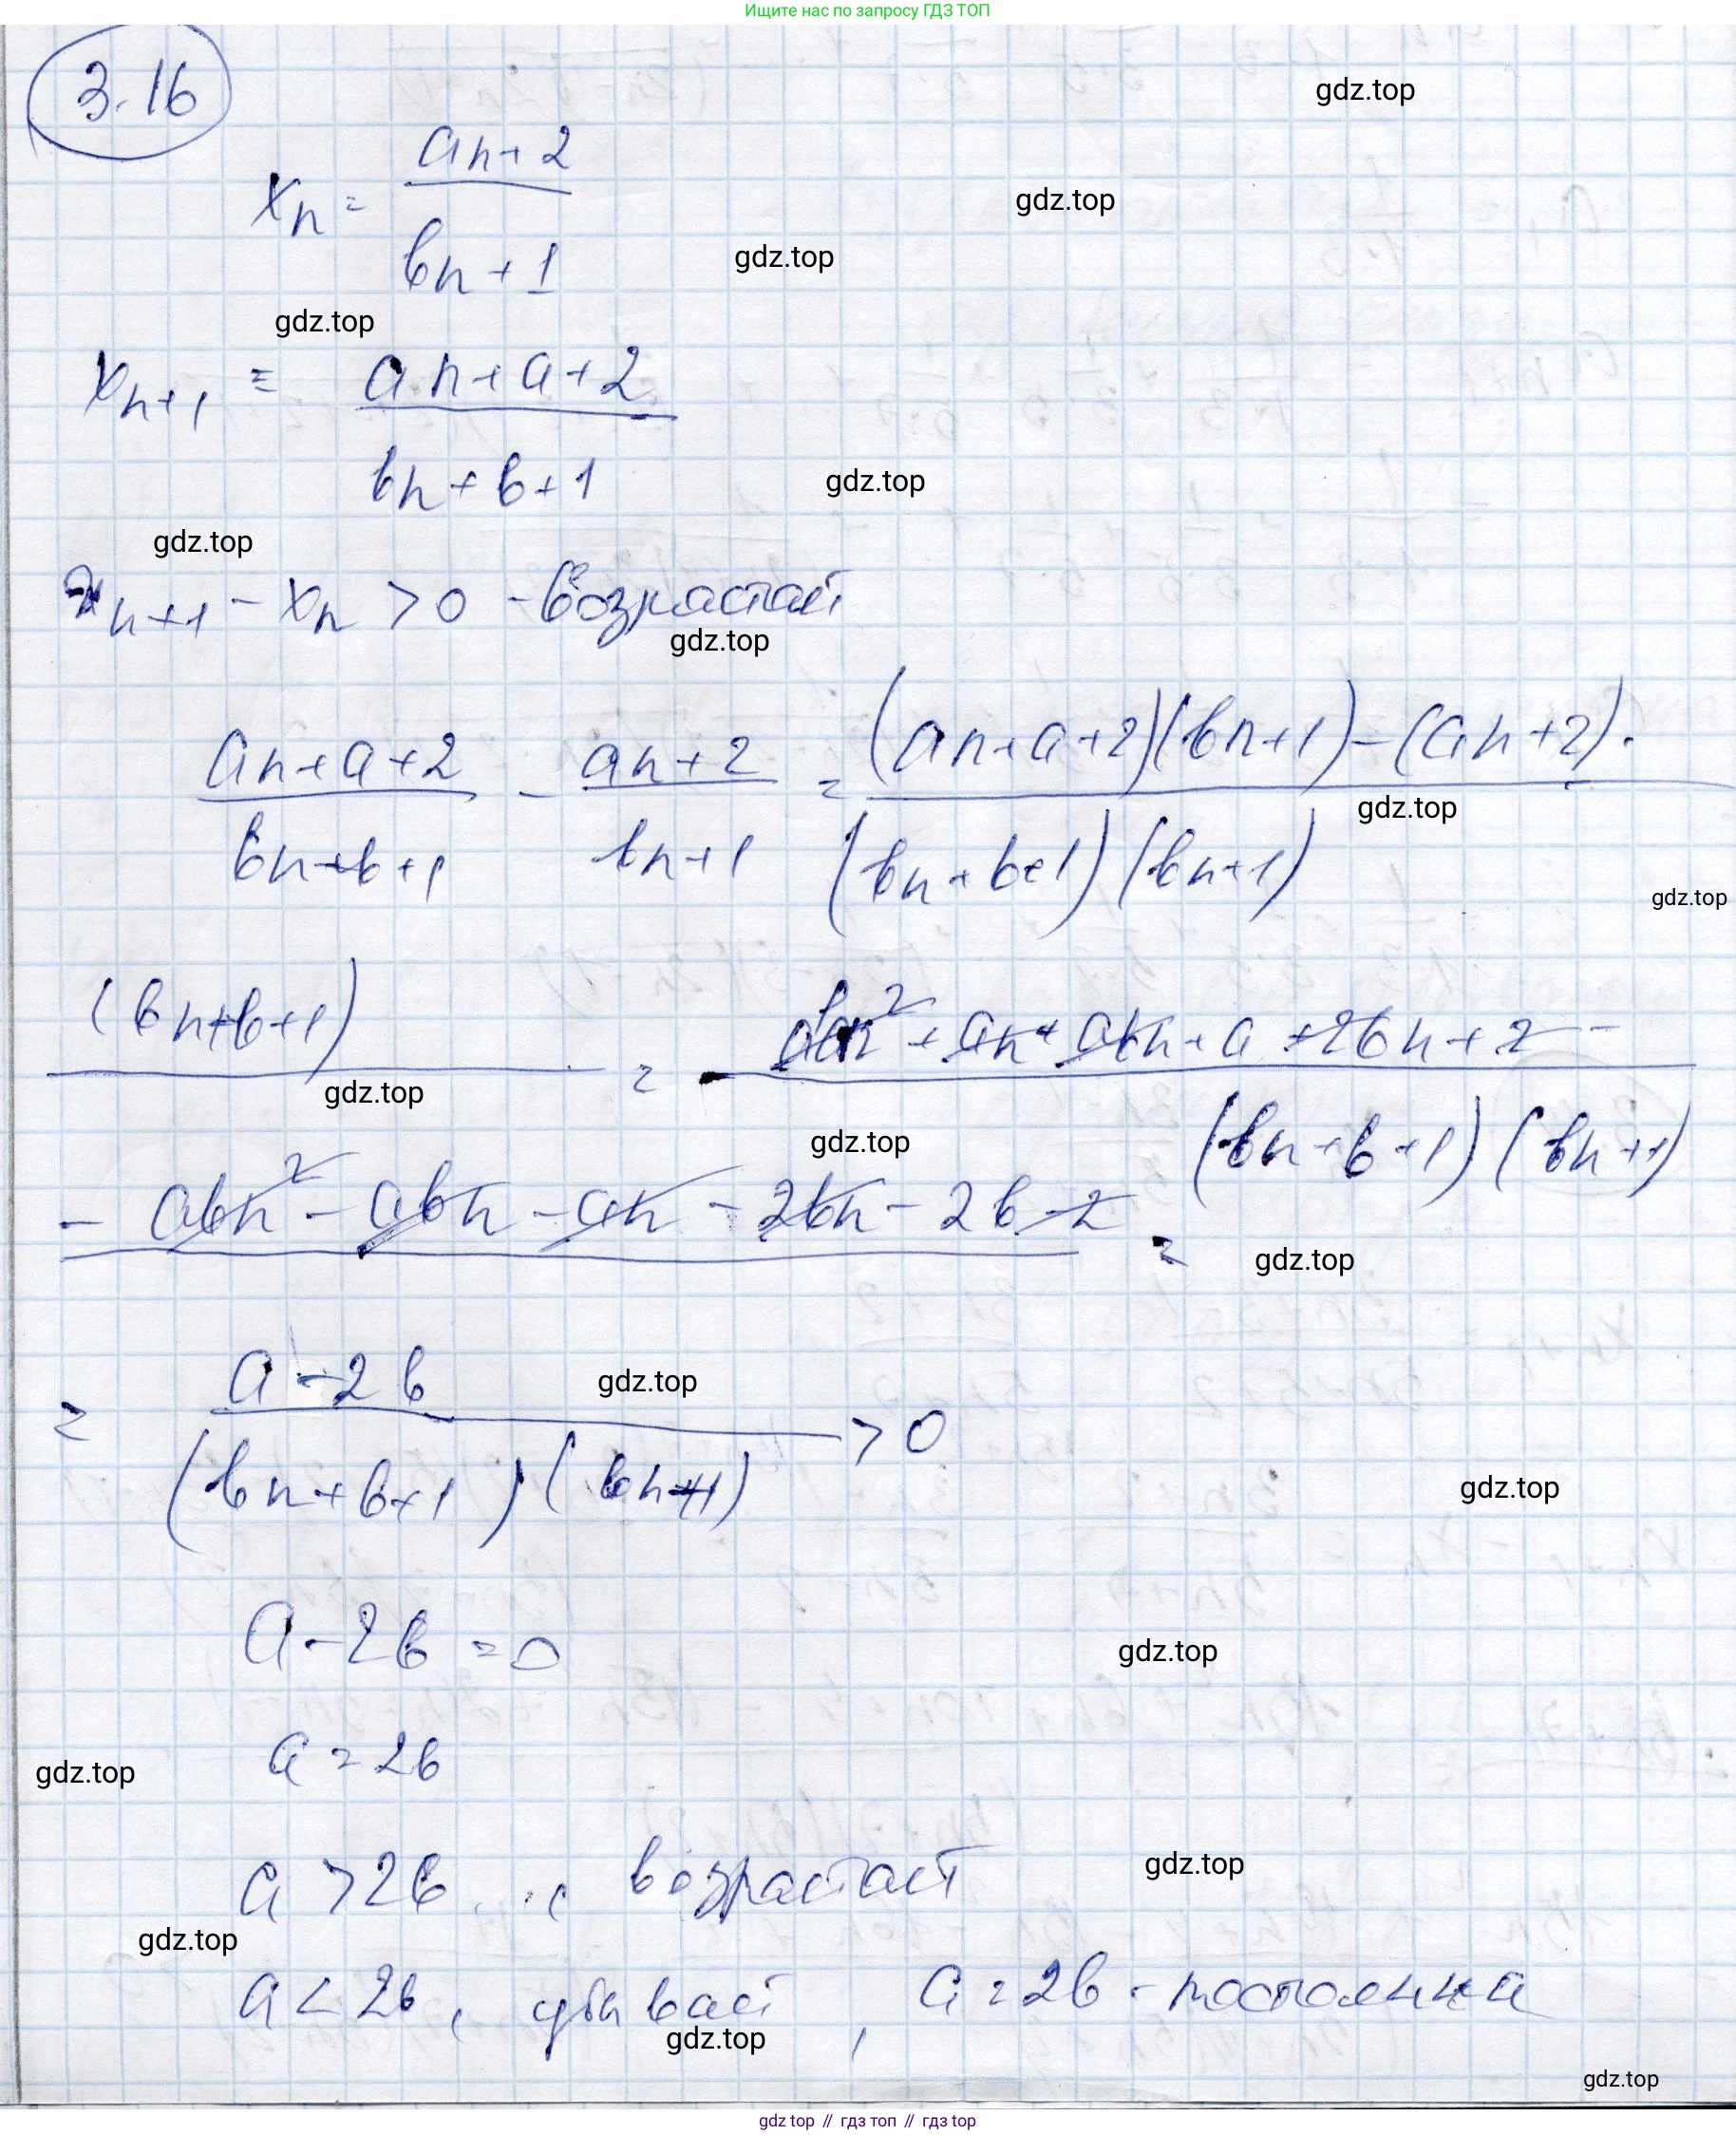 Ищите нас по запросу ГДЗ ТОП
3.16
gdz.top
xn = (an+2)/(bn+1)
gdz.top
gdz.top
gdz.top
xn+1 = (an+a+2)/(bn+b+1)
gdz.top
gdz.top
xn+1 - xn > 0 - возрастает
gdz.top
(an+a+2)/(bn+b+1) - (an+2)/(bn+1) = (an+a+2)(bn+1)-(an+2)·/(bn+b+1)(bn+1)
gdz.top
gdz.top
(bn+b+1) = abn²+an+abn+a+2bn+2-/(bn+b+1)(bn+1)
gdz.top
gdz.top
- abn² - abn - an - 2bn - 2b - 2 =
gdz.top
= (a-2b)/(bn+b+1)(bn+1) > 0
gdz.top
gdz.top
a-2b = 0
gdz.top
a = 2b
gdz.top
a > 2b, возрастает
gdz.top
gdz.top
a < 2b, убывает, a = 2b - постоянна
gdz.top
gdz.top
gdz top // гдз топ // гдз top